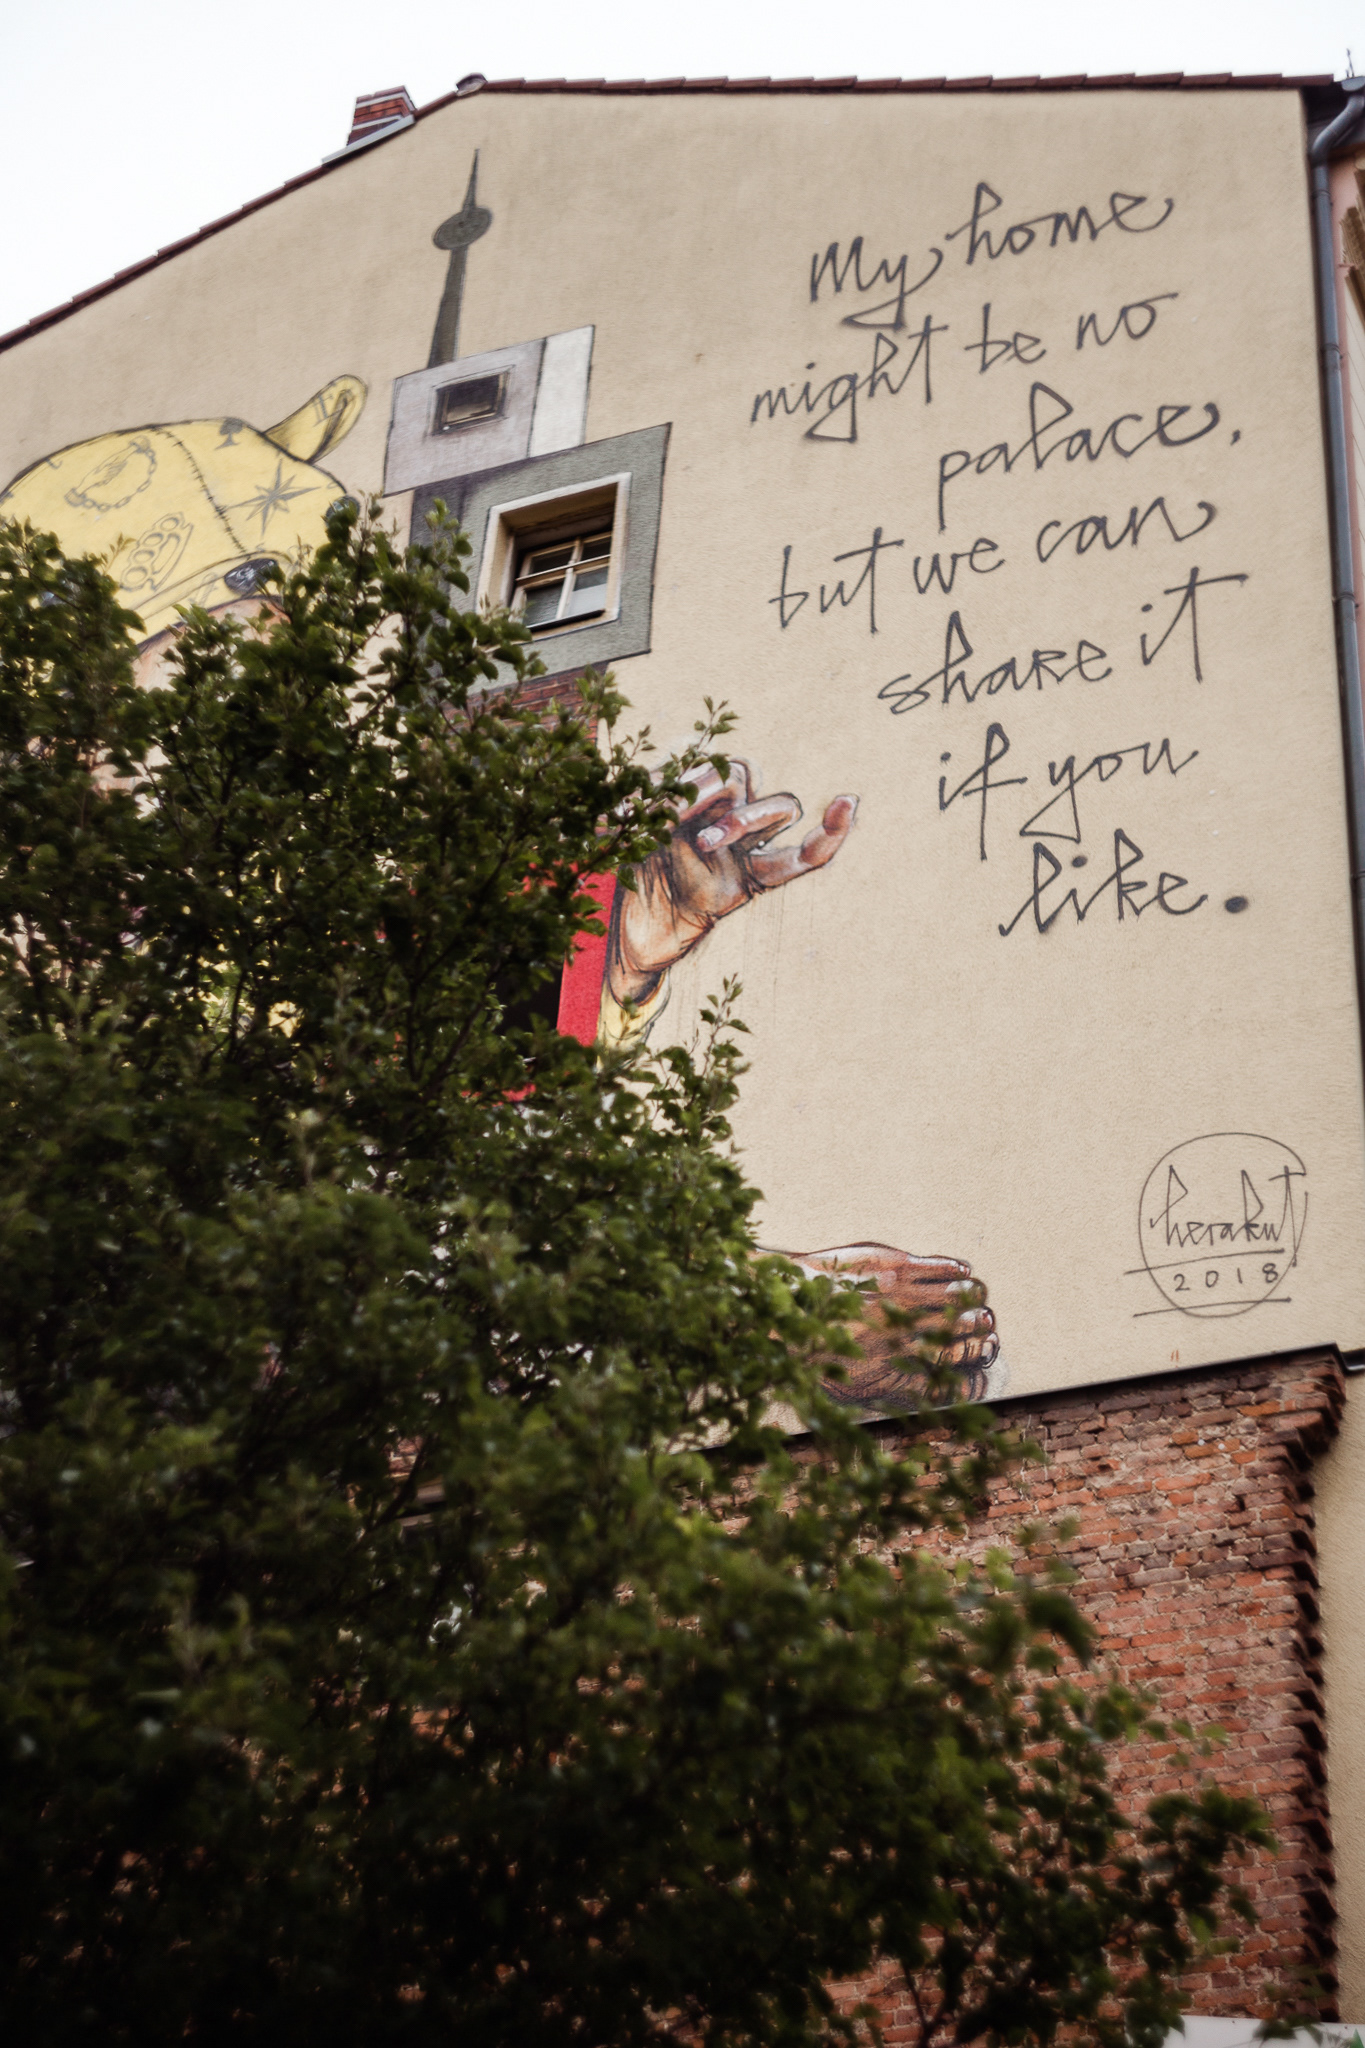 My home
might be no
palace,
but we can
share it
if you
like.
herakut
2018